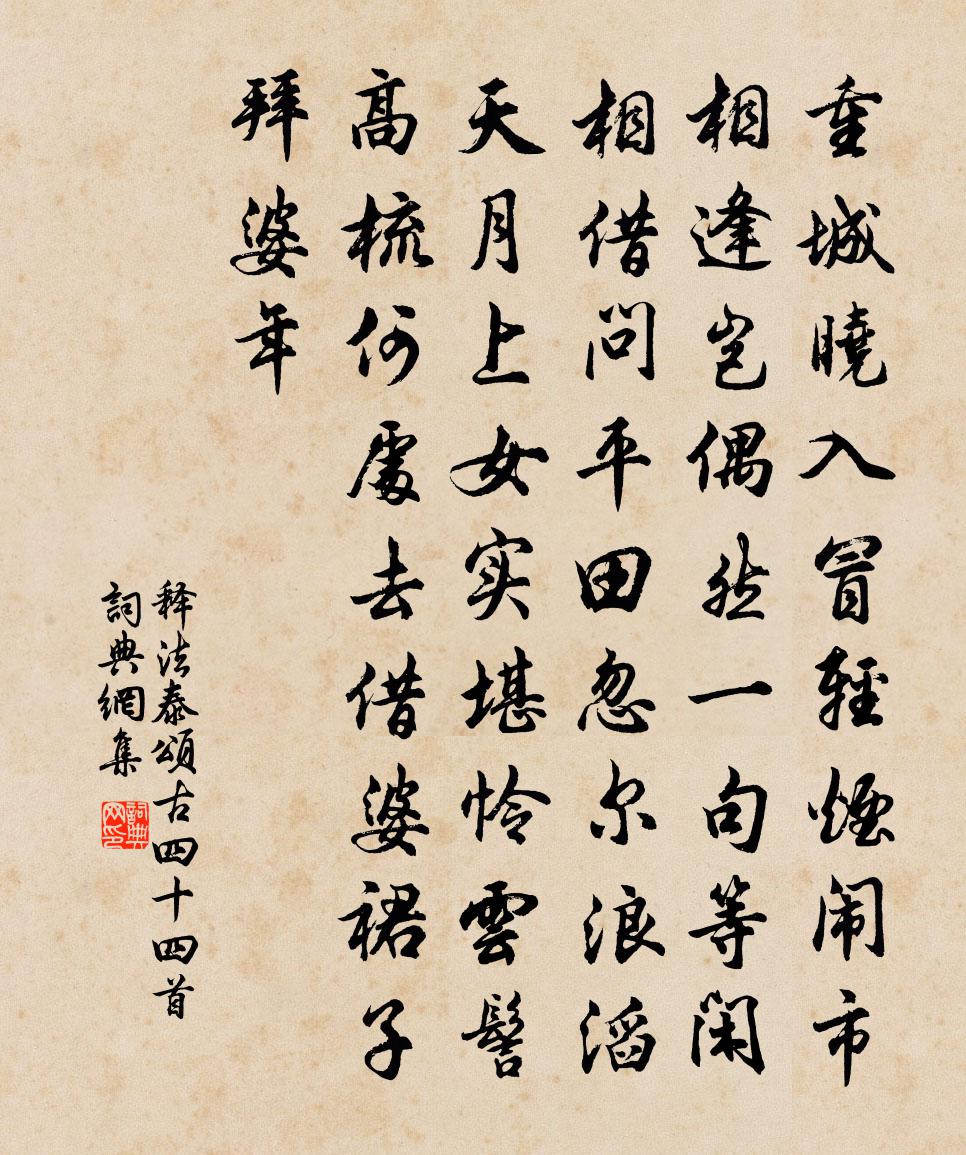 重城曉入冒輕煙闹市
相逢岂偶然一句等闲
相借问平田忽尔浪滔
天月上女实堪怜雲髻
高梳何處去借婆裙子
拜婆年
释法泰頌古四十四首
詞典網集
詞典网印